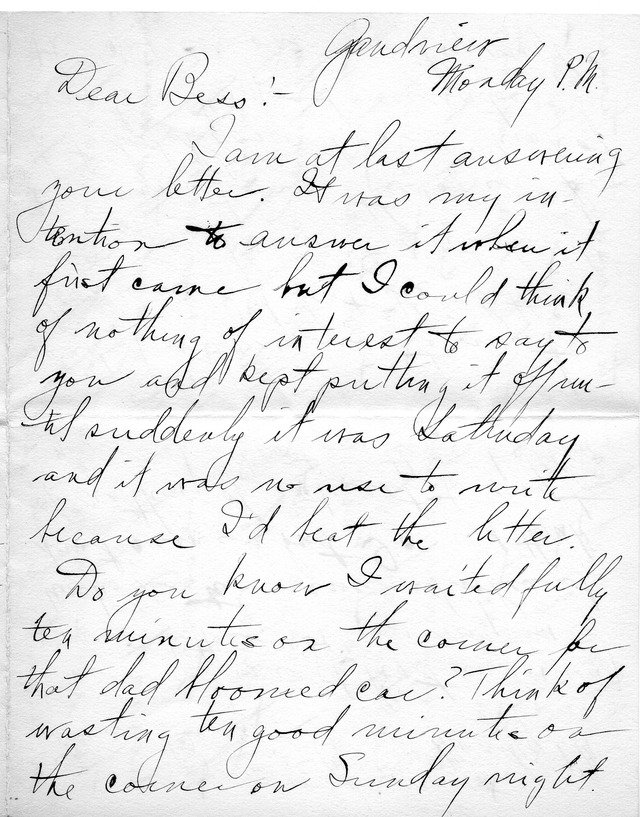 Grandview
Monday P.M.
Dear Bess:-
I am at last answering
your letter. It was my in-
tention to answer it when it
first came but I could think
of nothing of interest to say to
you and kept putting it off un-
til suddenly it was Saturday
and it was no use to write
because I'd beat the letter.
Do you know I waited fully
ten minutes on the corner for
that dad bloomed car? Think of
wasting ten good minutes on
the corner on Sunday night.